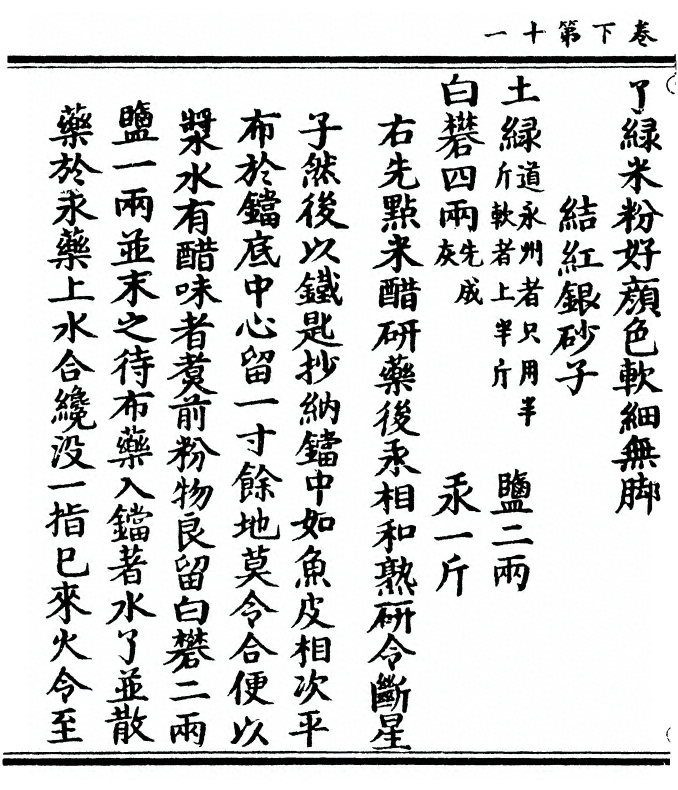 卷下第十一
了緑米粉好顔色軟細無脚
結紅銀砂子
土緑斤軟者上半斤道永州者只用半 鹽二兩
白礬四兩先成灰 汞一斤
右先點米醋研藥後汞相和熟研令斷星
子然後以鐵匙抄納鐺中如魚皮相次平
布於鐺底中心留一寸餘地莫令合便以
漿水有醋味者煑前粉物良留白礬二兩
鹽一兩並末之待布藥入鐺著水了並散
藥於汞藥上水合纔没一指巳來火令至